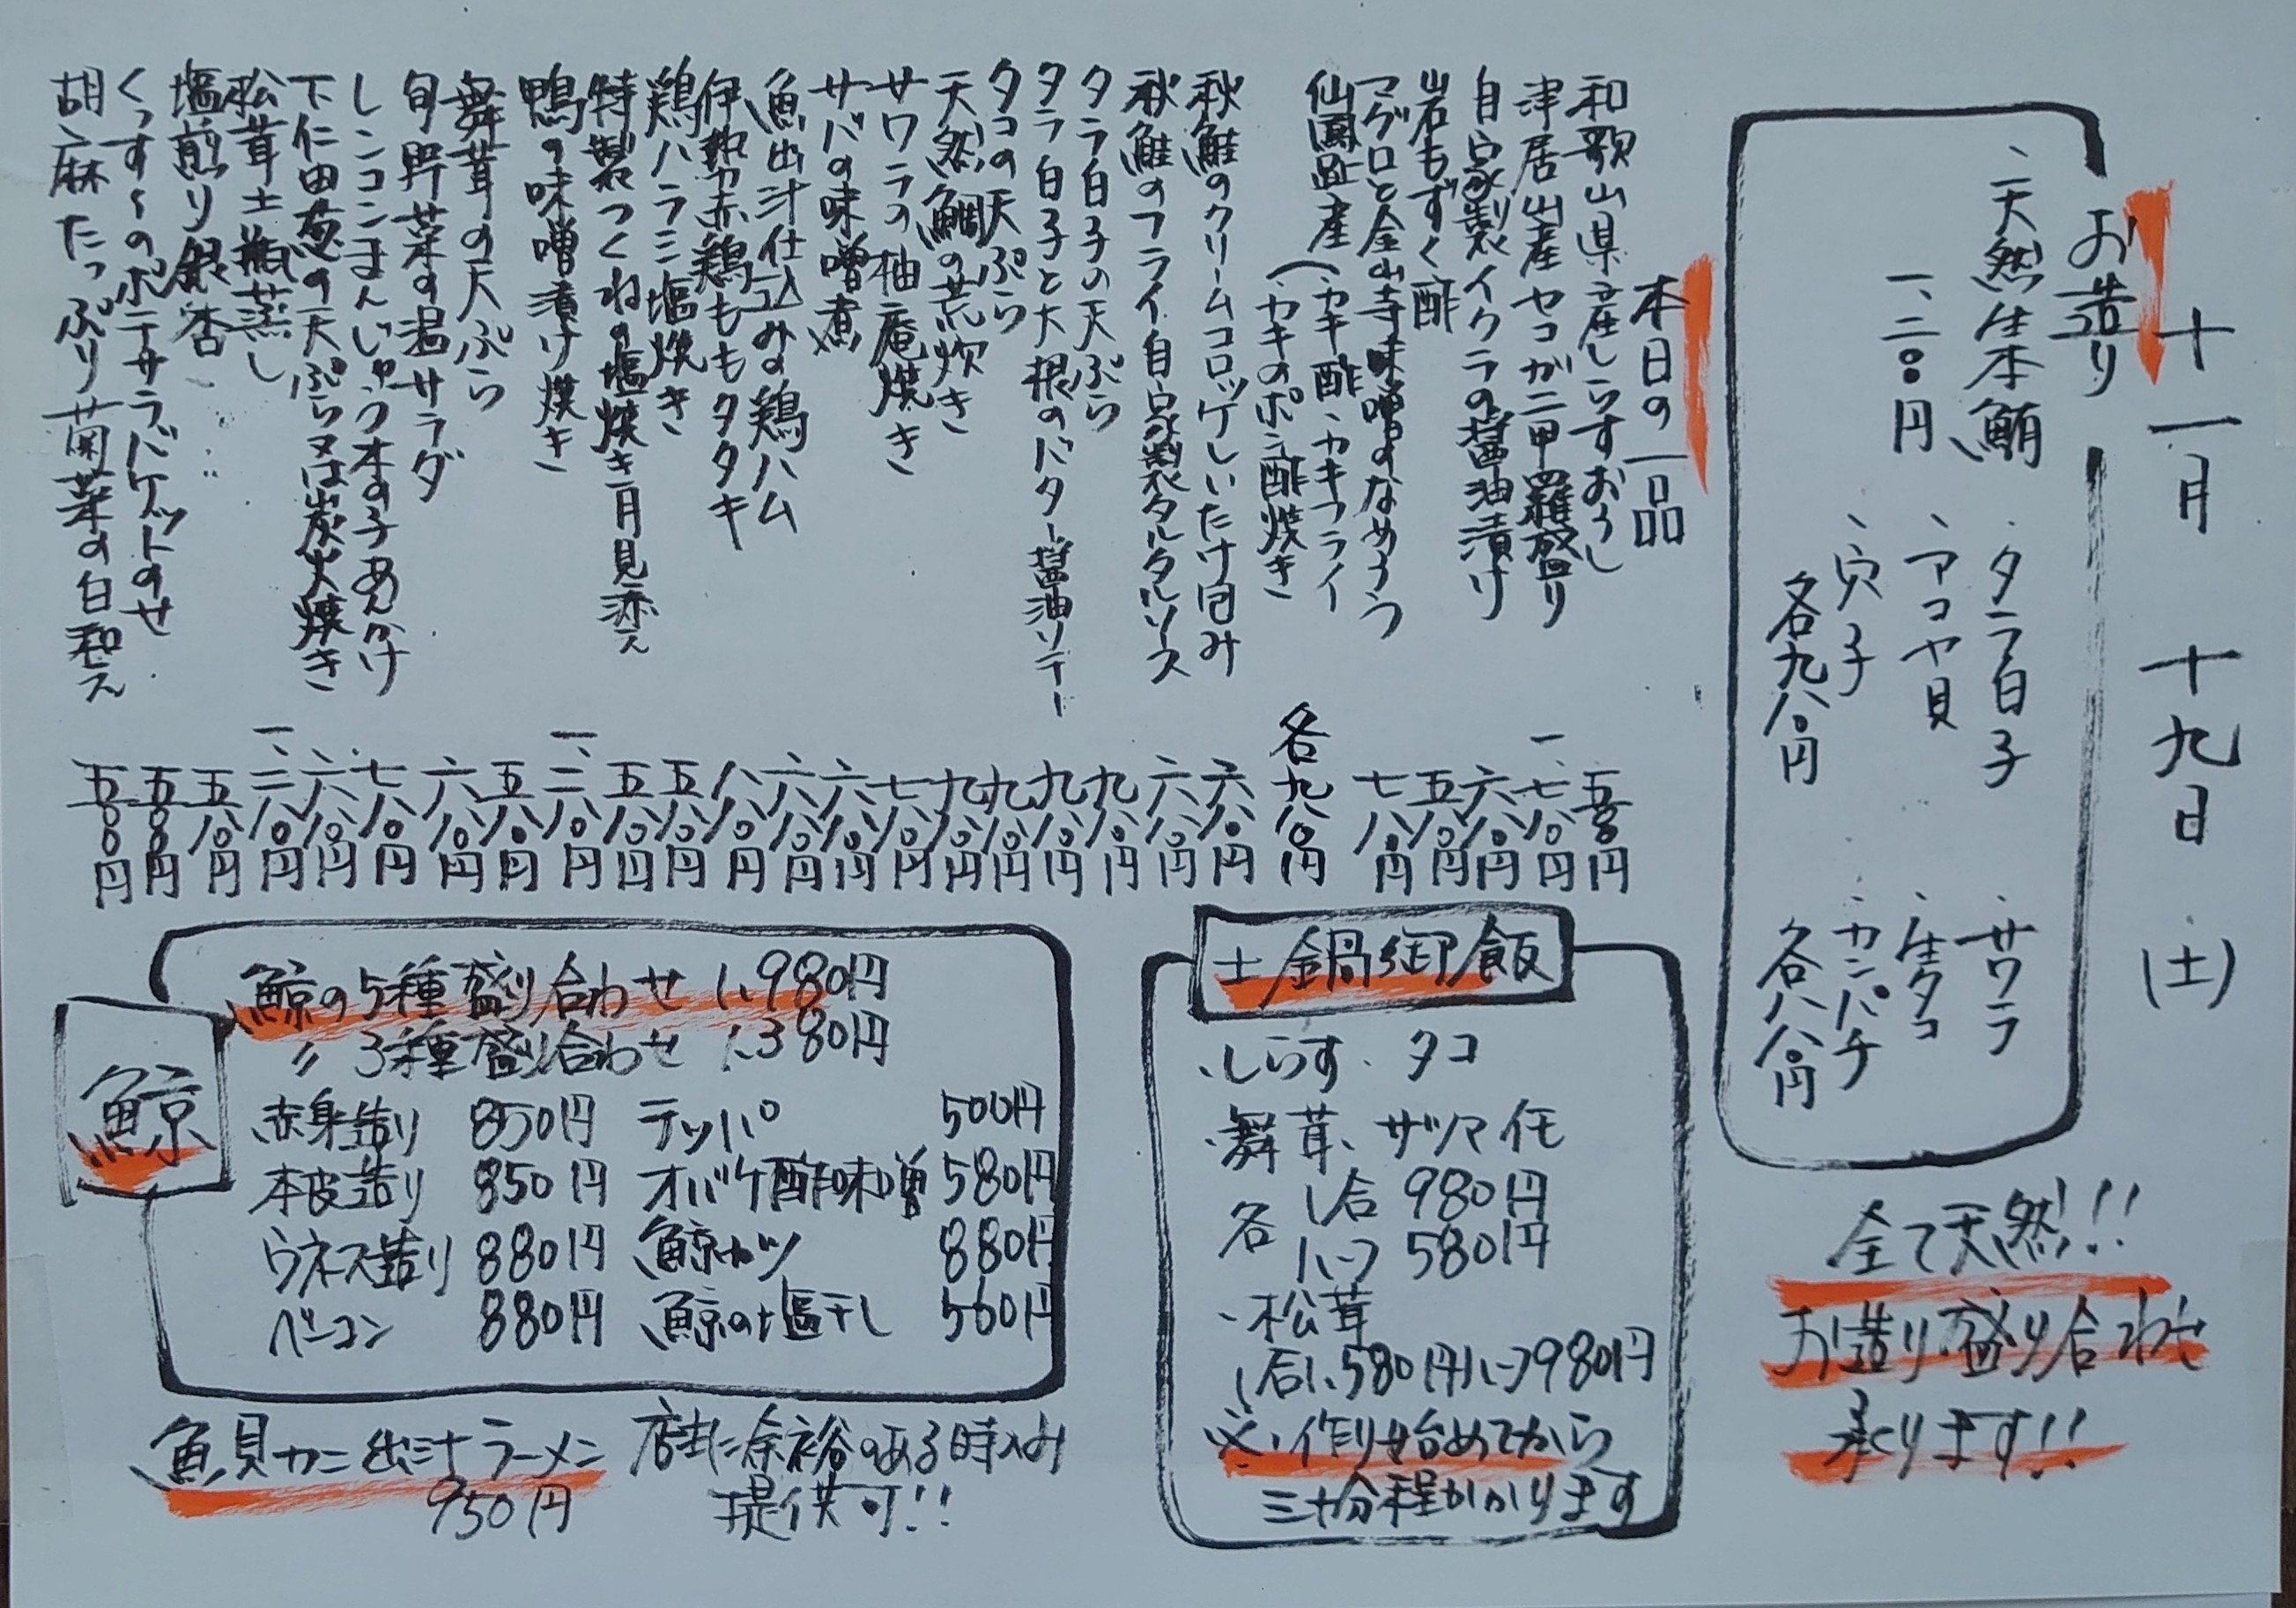 十一月 十九日 (土)
お造り
、天然生本鮪
一、二〇〇円
、タラ白子
、アコヤ貝
、穴子
各九八〇円
、サワラ
、生タコ
、カンパチ
各八八〇円
全て天然!!
お造り盛り合わせ
承ります!!
本日の一品
和歌山県産しらすおろし 五〇〇円
津居山産セコガニ甲羅盛り 一、七八〇円
自家製イクラの醤油漬け 六八〇円
岩もずく酢 五八〇円
マグロと金山寺味噌のなめろう 七八〇円
仙鳳趾産(カキ酢、カキフライ
、カキのポン酢焼き 各九八〇円
秋鮭のクリームコロッケしいたけ包み 六八〇円
秋鮭のフライ自家製タルタルソース 六八〇円
タラ白子の天ぷら 九八〇円
タラ白子と大根のバター醤油ソテー 九八〇円
タコの天ぷら 九八〇円
天然鯛の荒炊き 九八〇円
サワラの柚庵焼き 七八〇円
サバの味噌煮 六八〇円
魚出汁仕込みの鶏ハム 六八〇円
伊勢赤鶏ももタタキ 八八〇円
鶏ハラミ塩焼き 五八〇円
特製つくねの塩焼き月見添え 五八〇円
鴨の味噌漬け焼き 一、二八〇円
舞茸の天ぷら 五八〇円
旬野菜の温サラダ 六八〇円
レンコンまんじゅう木の子あんかけ 七八〇円
下仁田葱の天ぷら又は炭火焼き 六八〇円
松茸土瓶蒸し 一、二八〇円
塩煎り銀杏 五八〇円
くっすーのポテサラバケットのせ 五〇〇円
胡麻たっぷり菊菜の白和え 五〇〇円
土鍋御飯
、しらす、タコ
、舞茸、サツマイモ
各 1合 980円
ハーフ 580円
、松茸
1合1,580円ハーフ980円
※、作り始めてから
三十分程かかります
鯨
鯨の5種盛り合わせ 1,980円
〃 3種盛り合わせ 1,380円
赤身造り 850円 テッパ 500円
本皮造り 850円 オバケ酢味噌 580円
ウネス造り 880円 鯨カツ 880円
ベーコン 880円 鯨の塩干し 560円
魚貝カニ出汁ラーメン
950円
店主に余裕のある時のみ
提供可!!